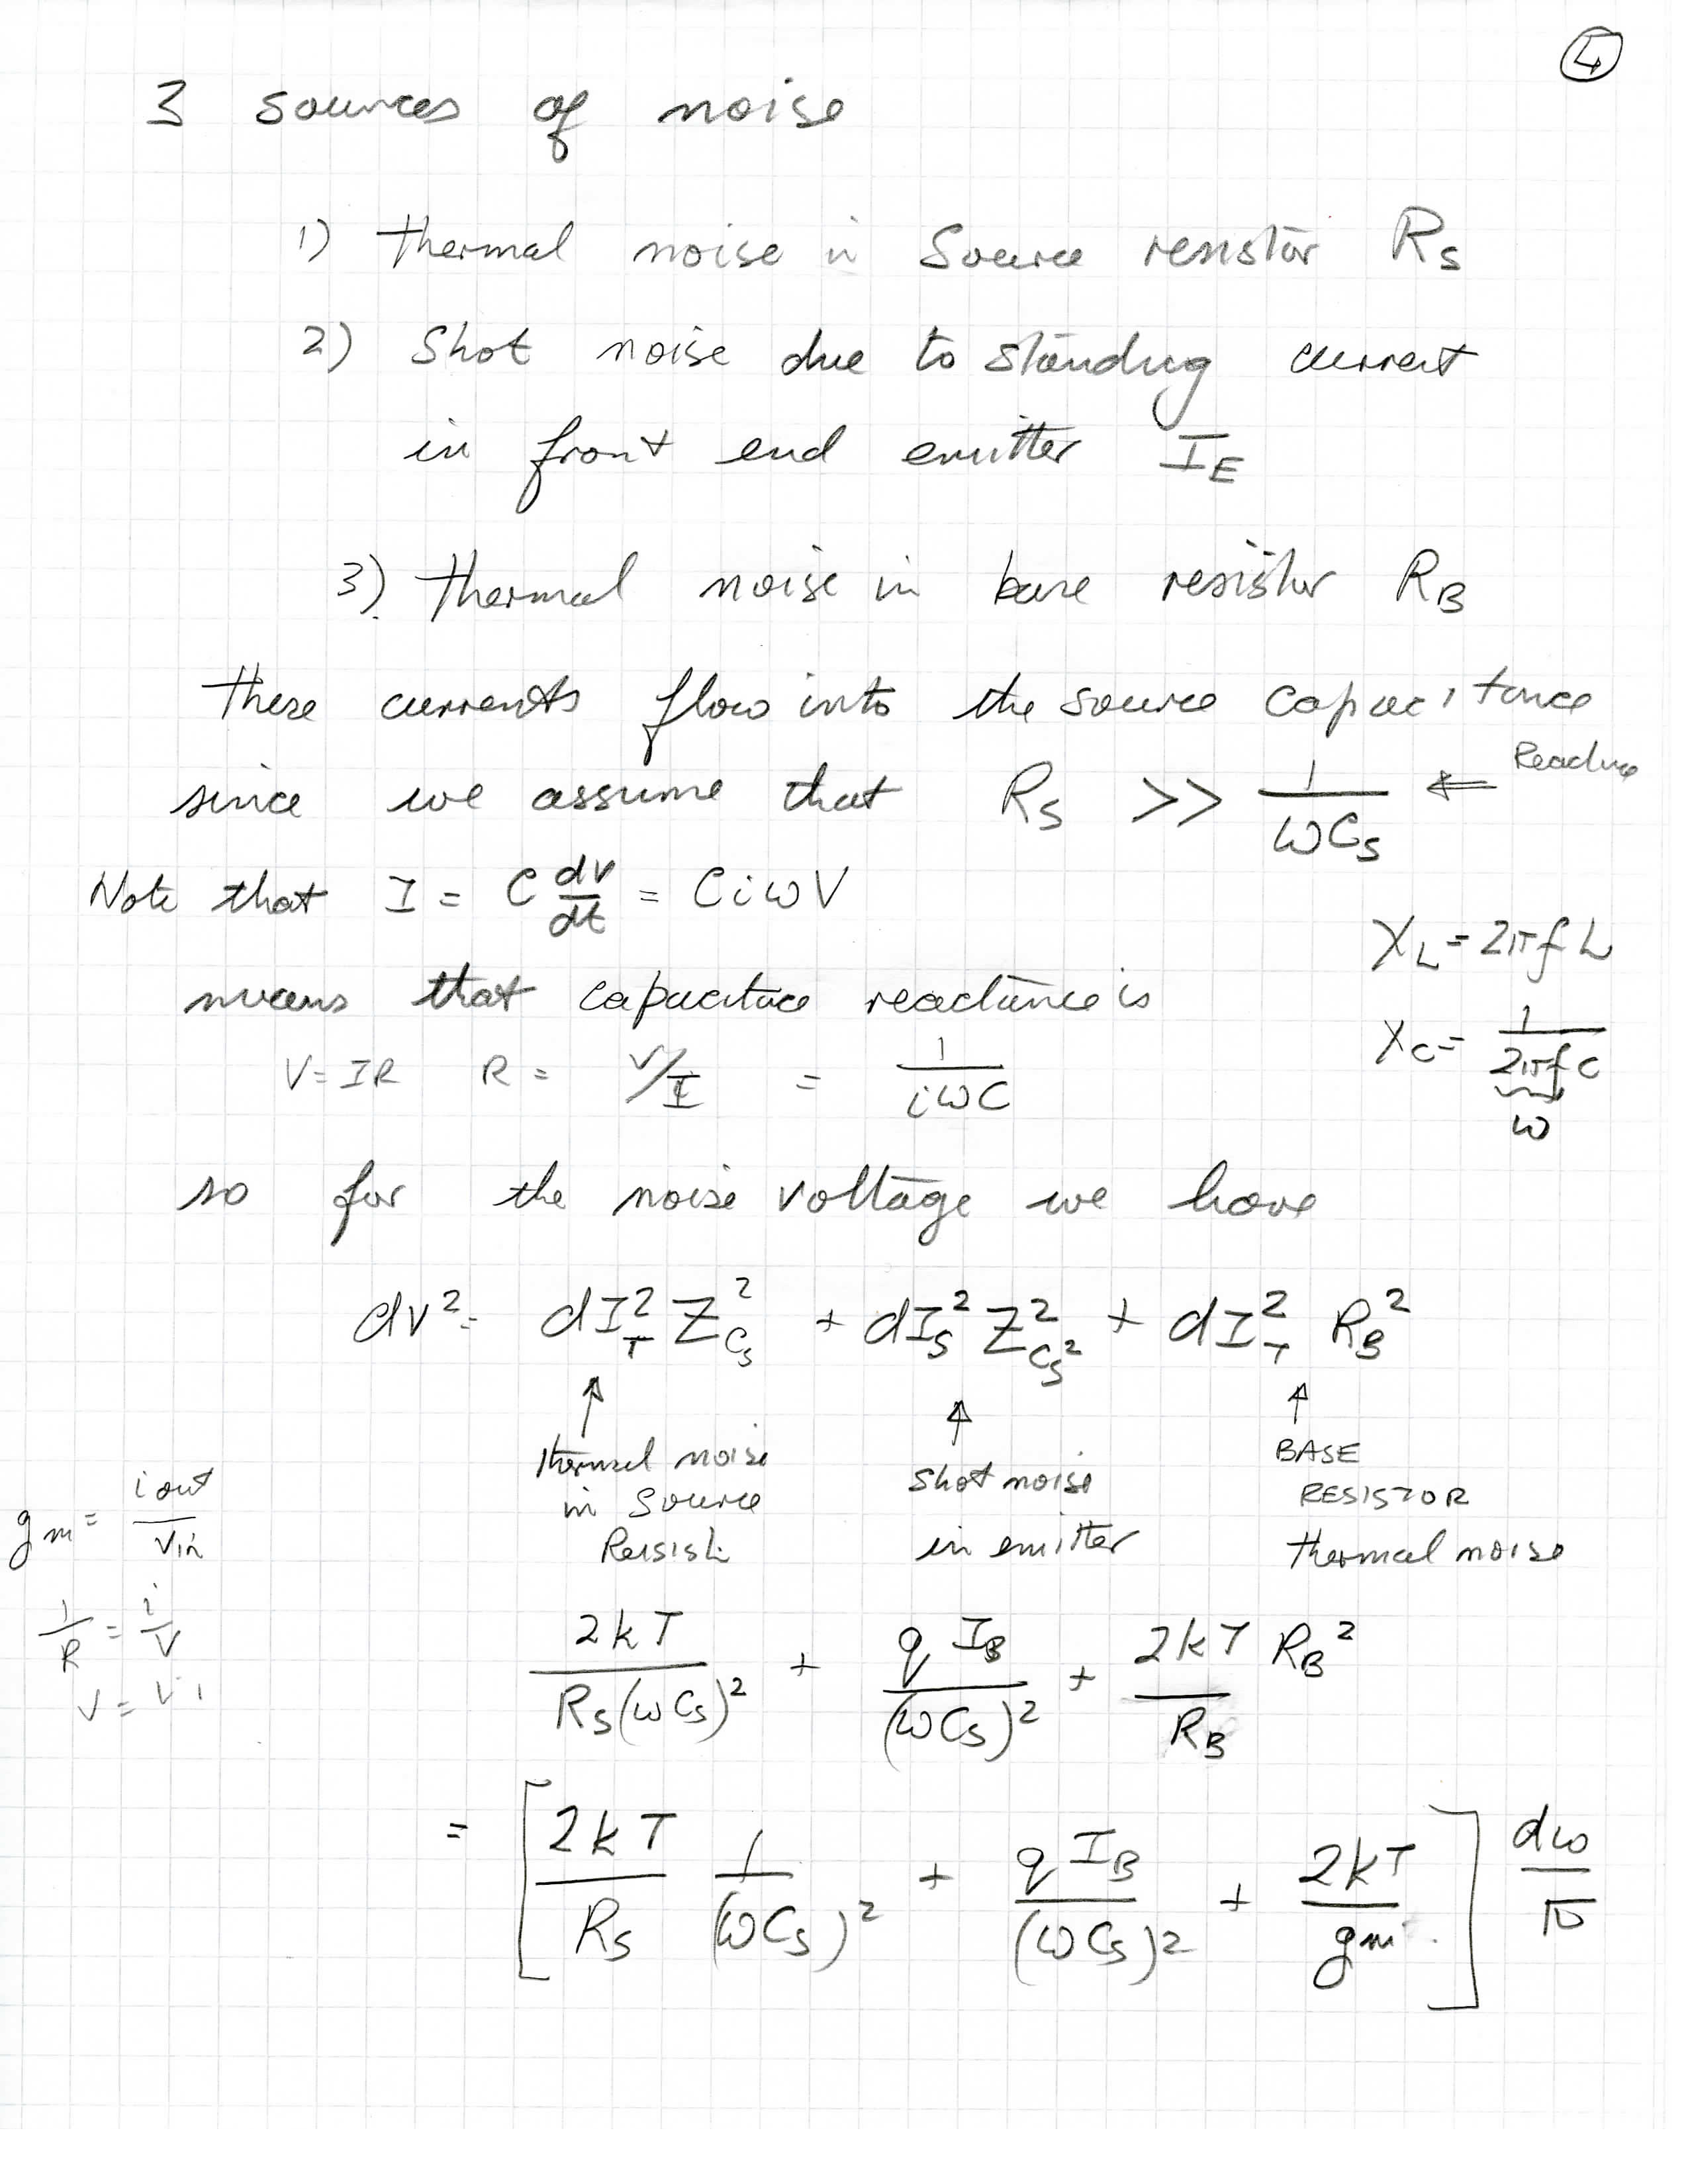 4
3 sources of noise
1) thermal noise in Source resistor R_S
2) Shot noise due to standing current
in front end emitter I_E
3) thermal noise in base resistor R_B
these currents flow into the source capacitance
since we assume that R_S >> 1/(ωC_S) ⇐
Note that I = C dv/dt = CiωV
X_L = 2πfL
means that capacitance reactance is
X_C = 1/(2πfC)
ω
V=IR R = V/I = 1/(iωC)
so for the noise voltage we have
dv² = dI_T² Z_{C_S}² + dI_S² Z_{C_S²}² + dI_T² R_B²
↑ ↑ ↑
thermal noise in Source
shot noise in emitter
BASE RESISTOR thermal noise
g_m = i out / v in
1/R = i/V
2kT/(R_S(ωC_S)²) + q I_B/(ωC_S)² + 2kT/R_B R_B²
= [ 2kT/R_S 1/(ωC_S)² + q I_B/(ωC_S)² + 2kT/g_m ] dω/π